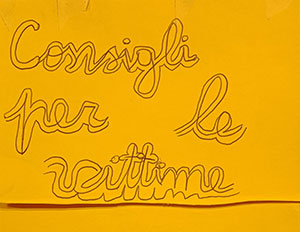 Consigli
per le
vittime